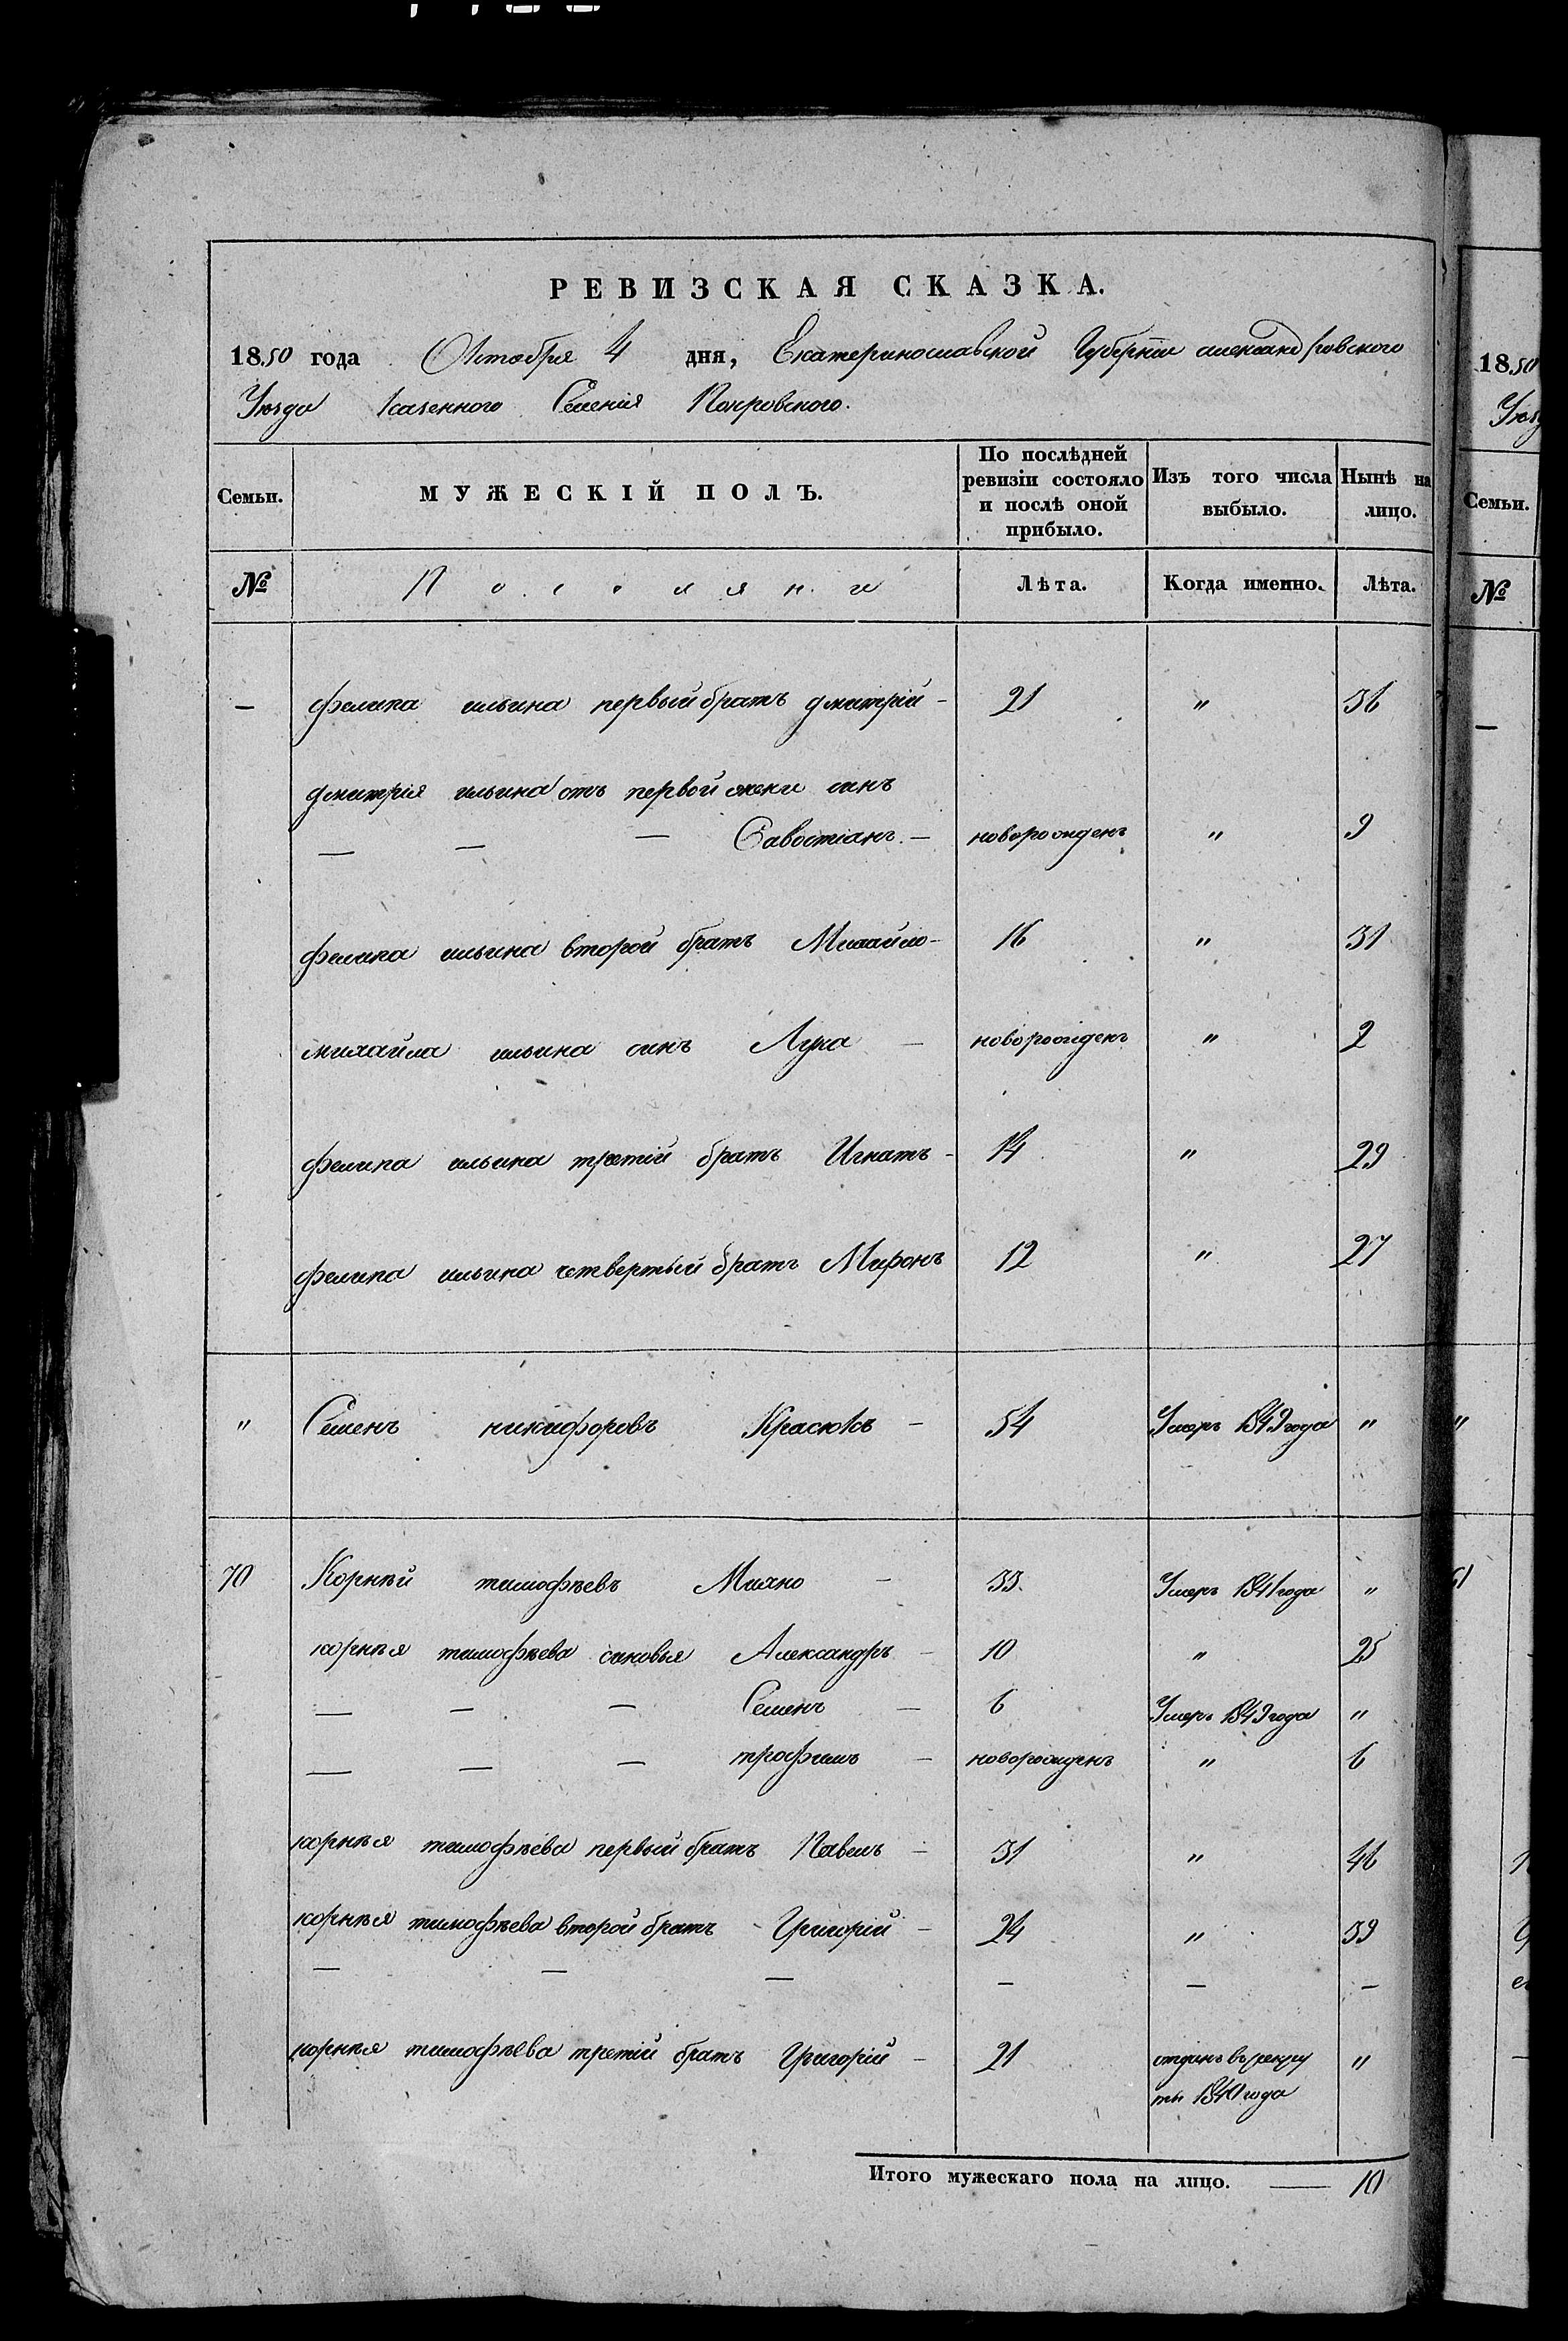 РЕВИЗСКАЯ СКАЗКА.
1850 года Октября 4 дня, Екатеринославской Губерніи александровского
Уѣзда казенного Селенія Покровского.
Семьи. МУЖЕСКІЙ ПОЛЪ. По послѣдней ревизіи состояло и послѣ оной прибыло. Изъ того числа выбыло. Нынѣ на лицо.
№ Поселяни Лѣта. Когда именно. Лѣта.
— филипа ильина первый братъ дмитрій - 21 " 36
дмитрія ильина отъ первой жени синъ
— — — Савостіанъ. — новорожденъ " 9
филипа ильина второй братъ Михайло - 16 " 31
михайла ильина синъ Лука — новорожденъ " 2
филипа ильина третій братъ Игнатъ - 14 " 29
филипа ильина четвертый братъ Миронъ 12 " 27
" Семенъ никифоровъ Красюкъ - 54 Умеръ 1849 года "
70 Корнѣй тимофѣевъ Михно — 33. Умеръ 1841 года "
корнѣя тимофѣева синовья Александръ — 10 " 25
— — — Семенъ — 6 Умеръ 1849 года "
— — — трофимъ — новорожденъ " 6
корнѣя тимофѣева первый братъ Павелъ — 31 " 46
корнѣя тимофѣева второй братъ Григорій — 24 " 39
— — — — — —
корнѣя тимофѣева третій братъ Григорій — 21 отданъ въ рекру "
ты 1840 года
Итого мужескаго пола на лицо. — 10
1850
Семьи.
№
—
"